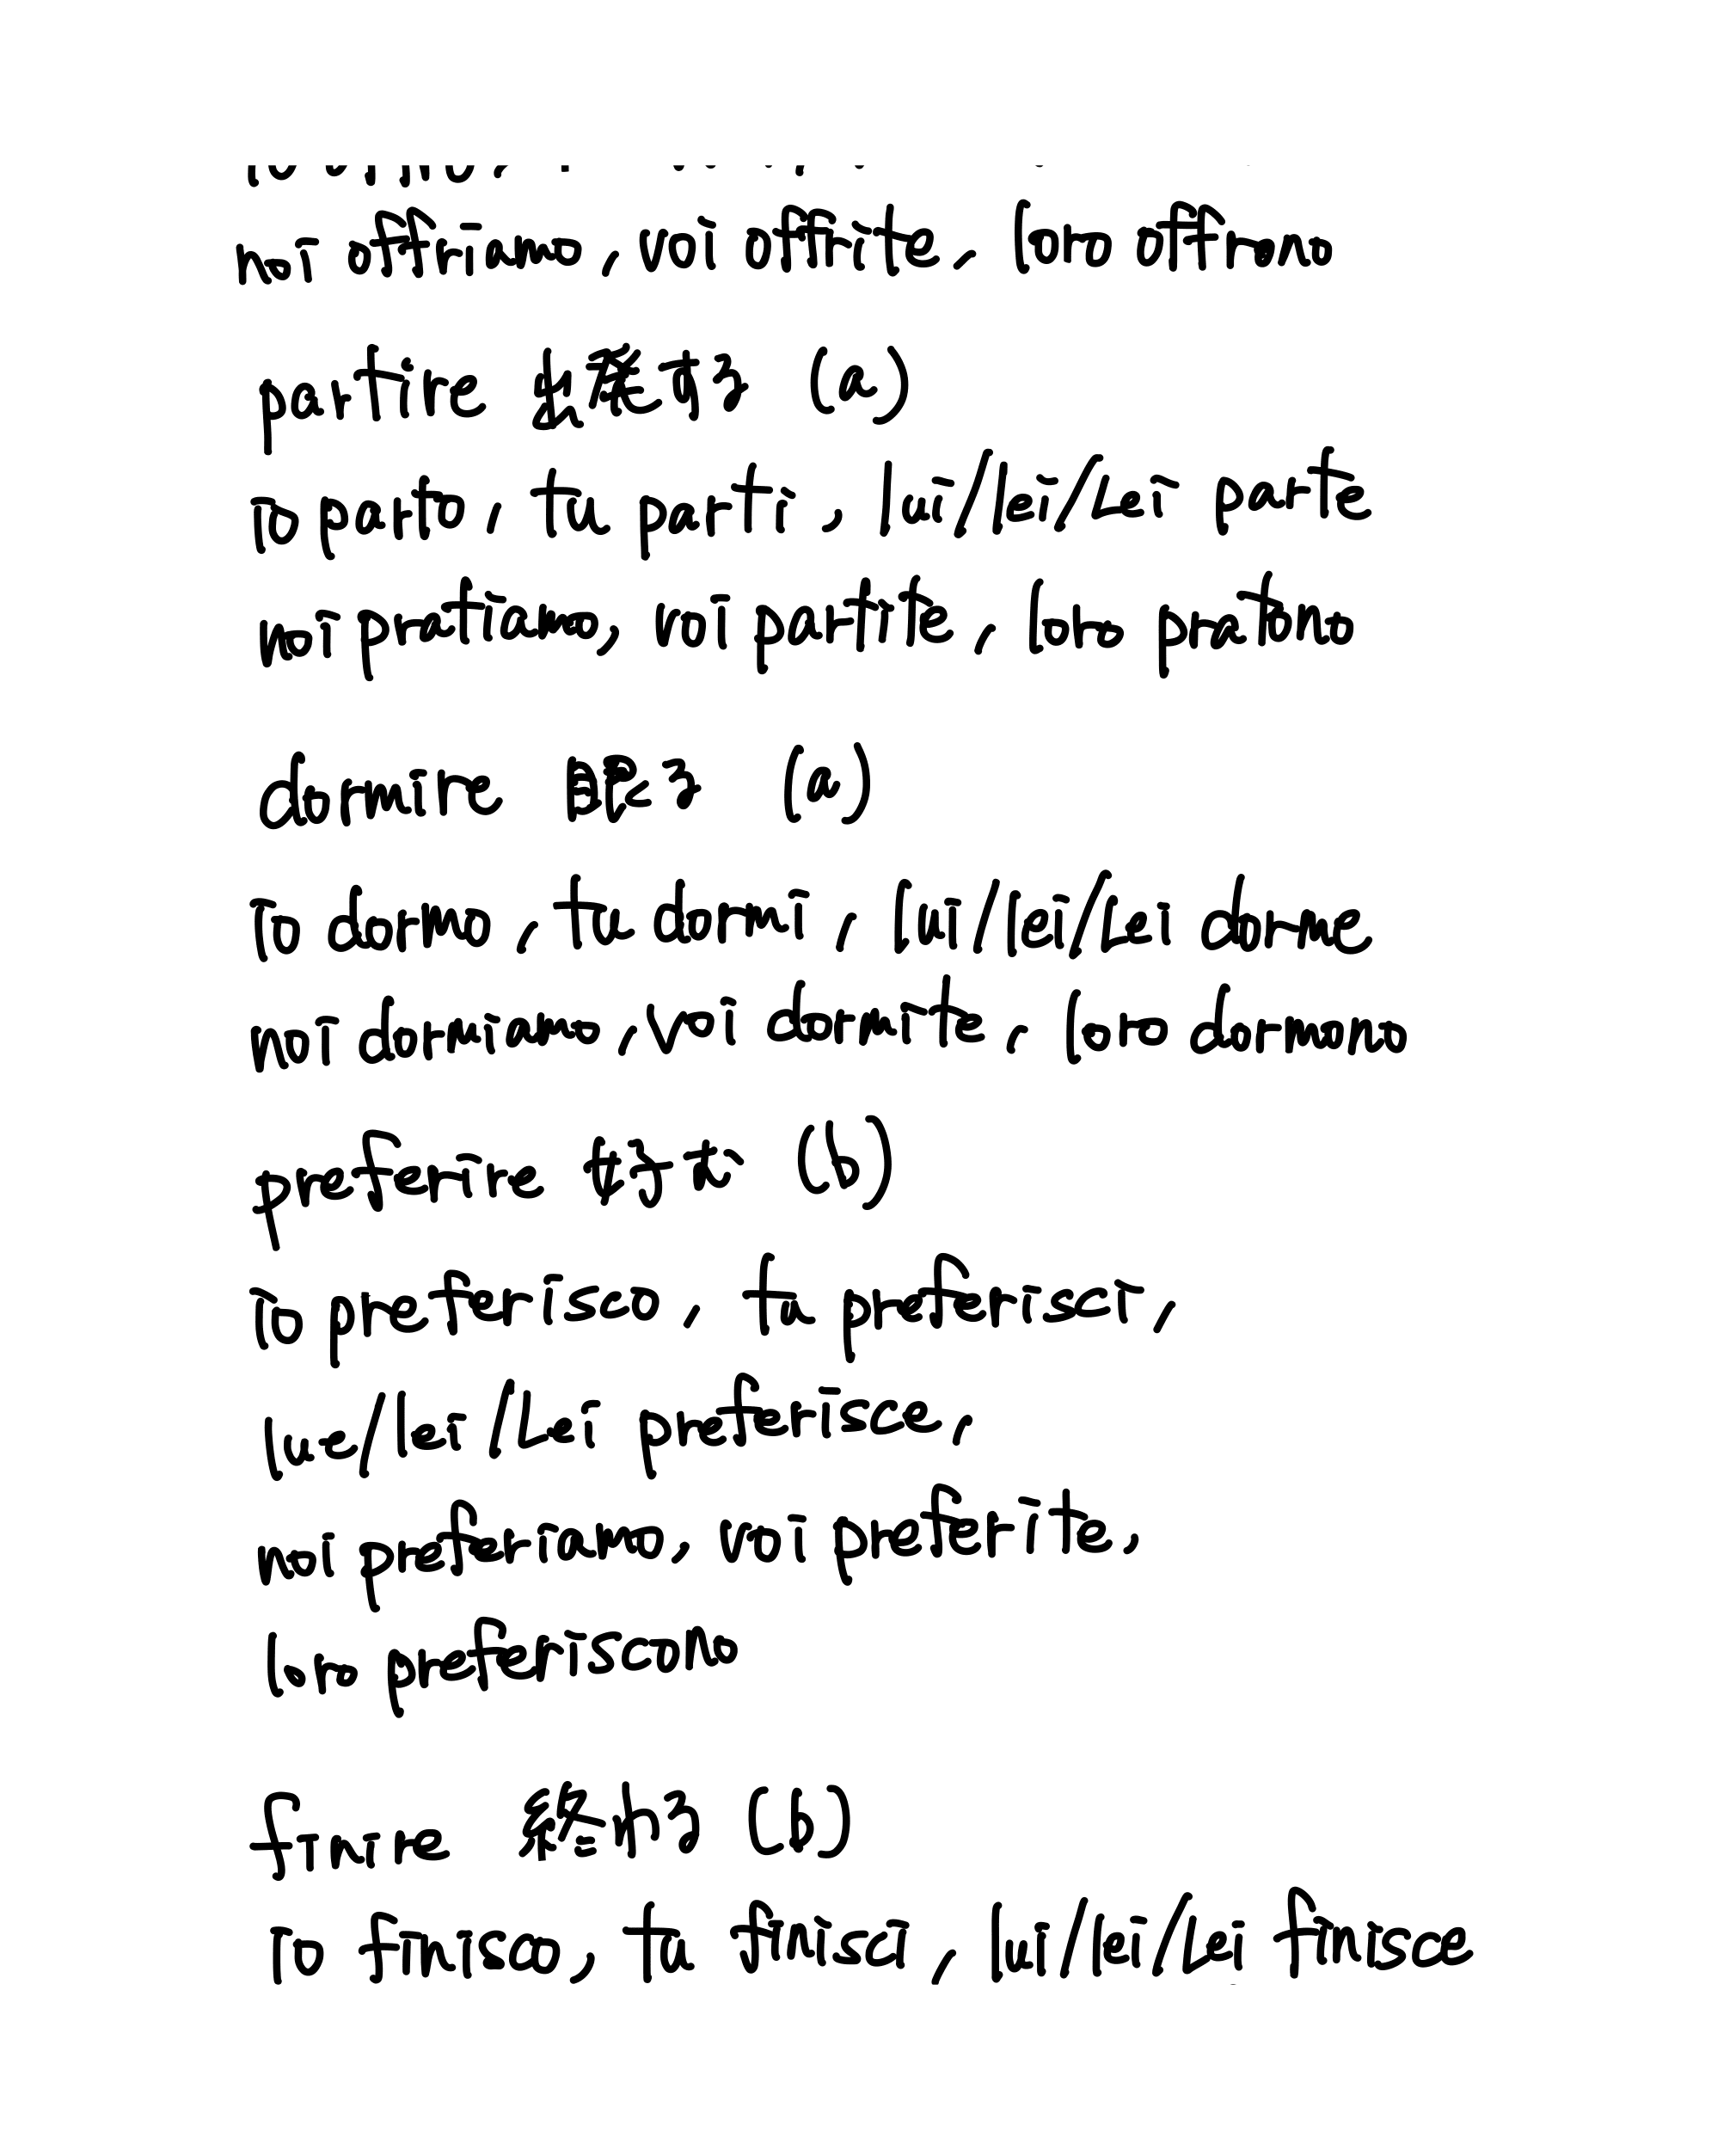 noi offriamo, voi offrite, loro offrono
partire 出発する (a)
io parto, tu parti, lui/lei/Lei parte
noi pratiamo, voi partite, loro pratono
dormire 眠る (a)
io dormo, tu dormi, lui/lei/Lei dorme
noi dormiamo, voi dormite, loro dormono
preferire むずむ (b)
io preferisco, tu preferisci,
lue/lei/Lei preferisce,
noi preferiamo, voi preferite,
loro preferiscono
finire 終わる (b)
io finisco, tu finisci, lui/lei/Lei finisce